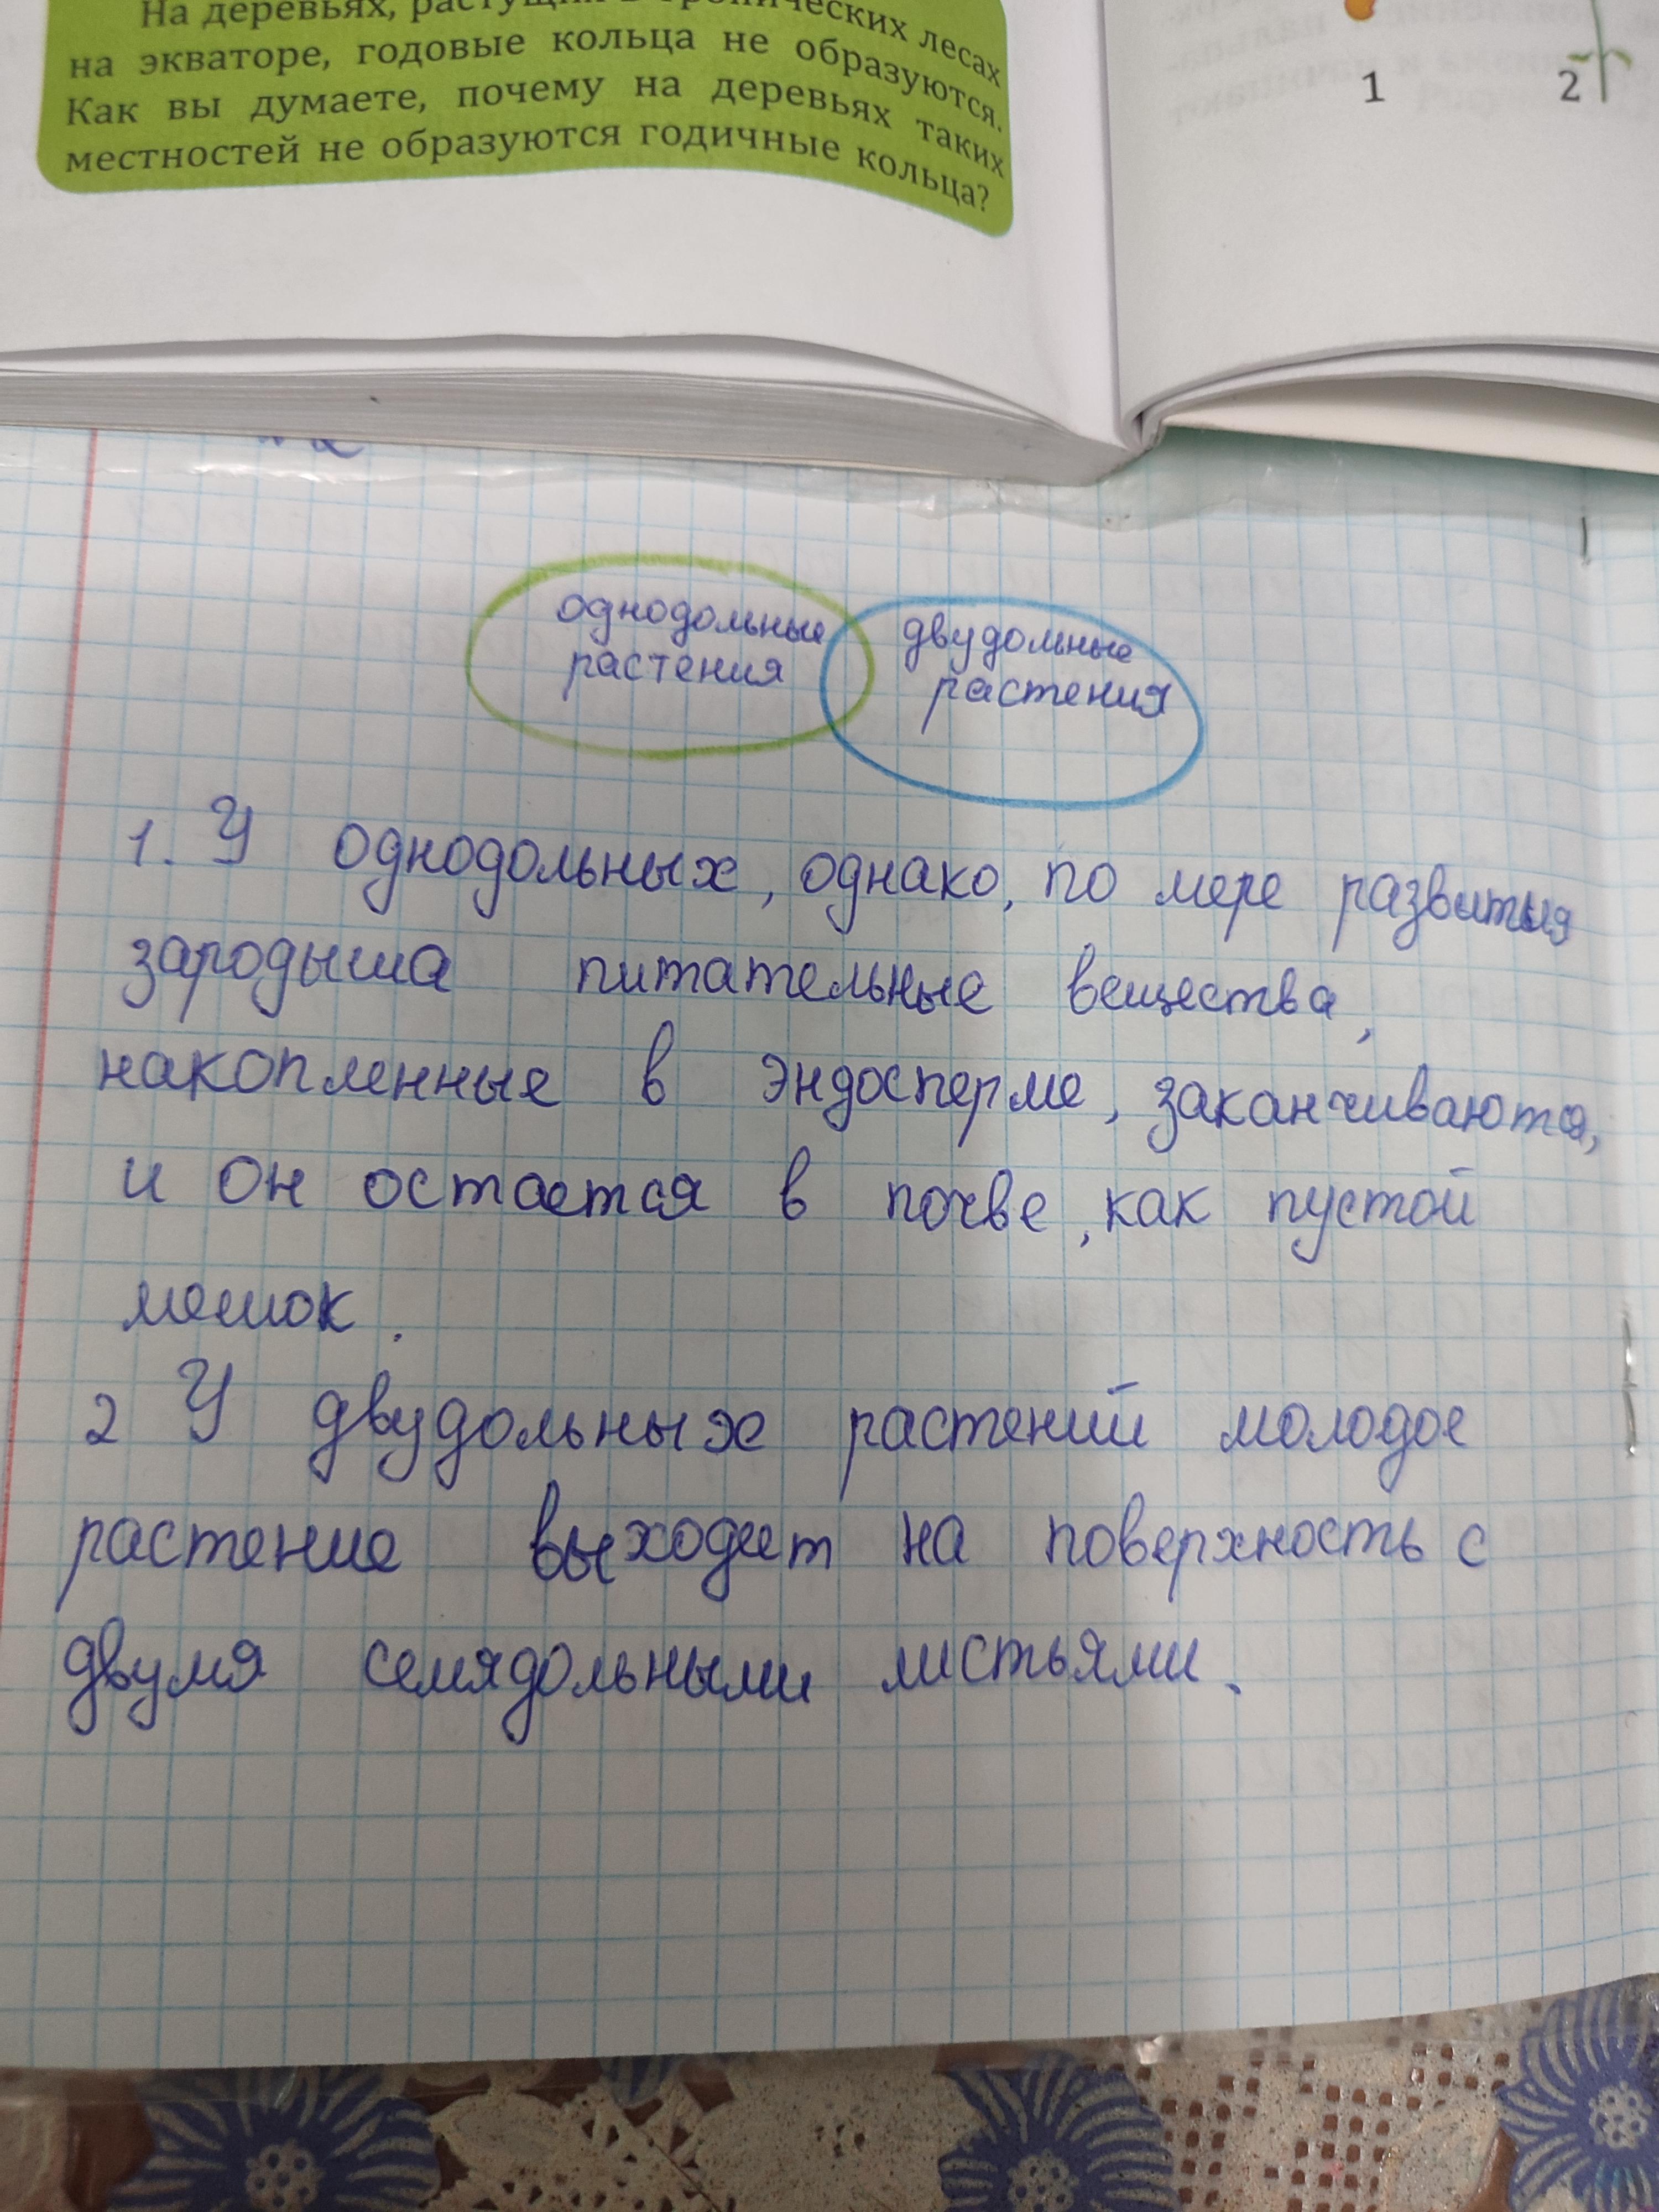 На деревьях, растущих в тропических лесах
на экваторе, годовые кольца не образуются.
Как вы думаете, почему на деревьях таких
местностей не образуются годичные кольца?
1
2
однодольные
растения
двудольные
растения
1. У однодольных, однако, по мере развития
зародыша питательные вещества,
накопленные в эндосперме, заканчиваются,
и он остается в почве, как пустой
мешок.
2 У двудольных растений молодое
растение выходит на поверхность с
двумя семядольными листьями.